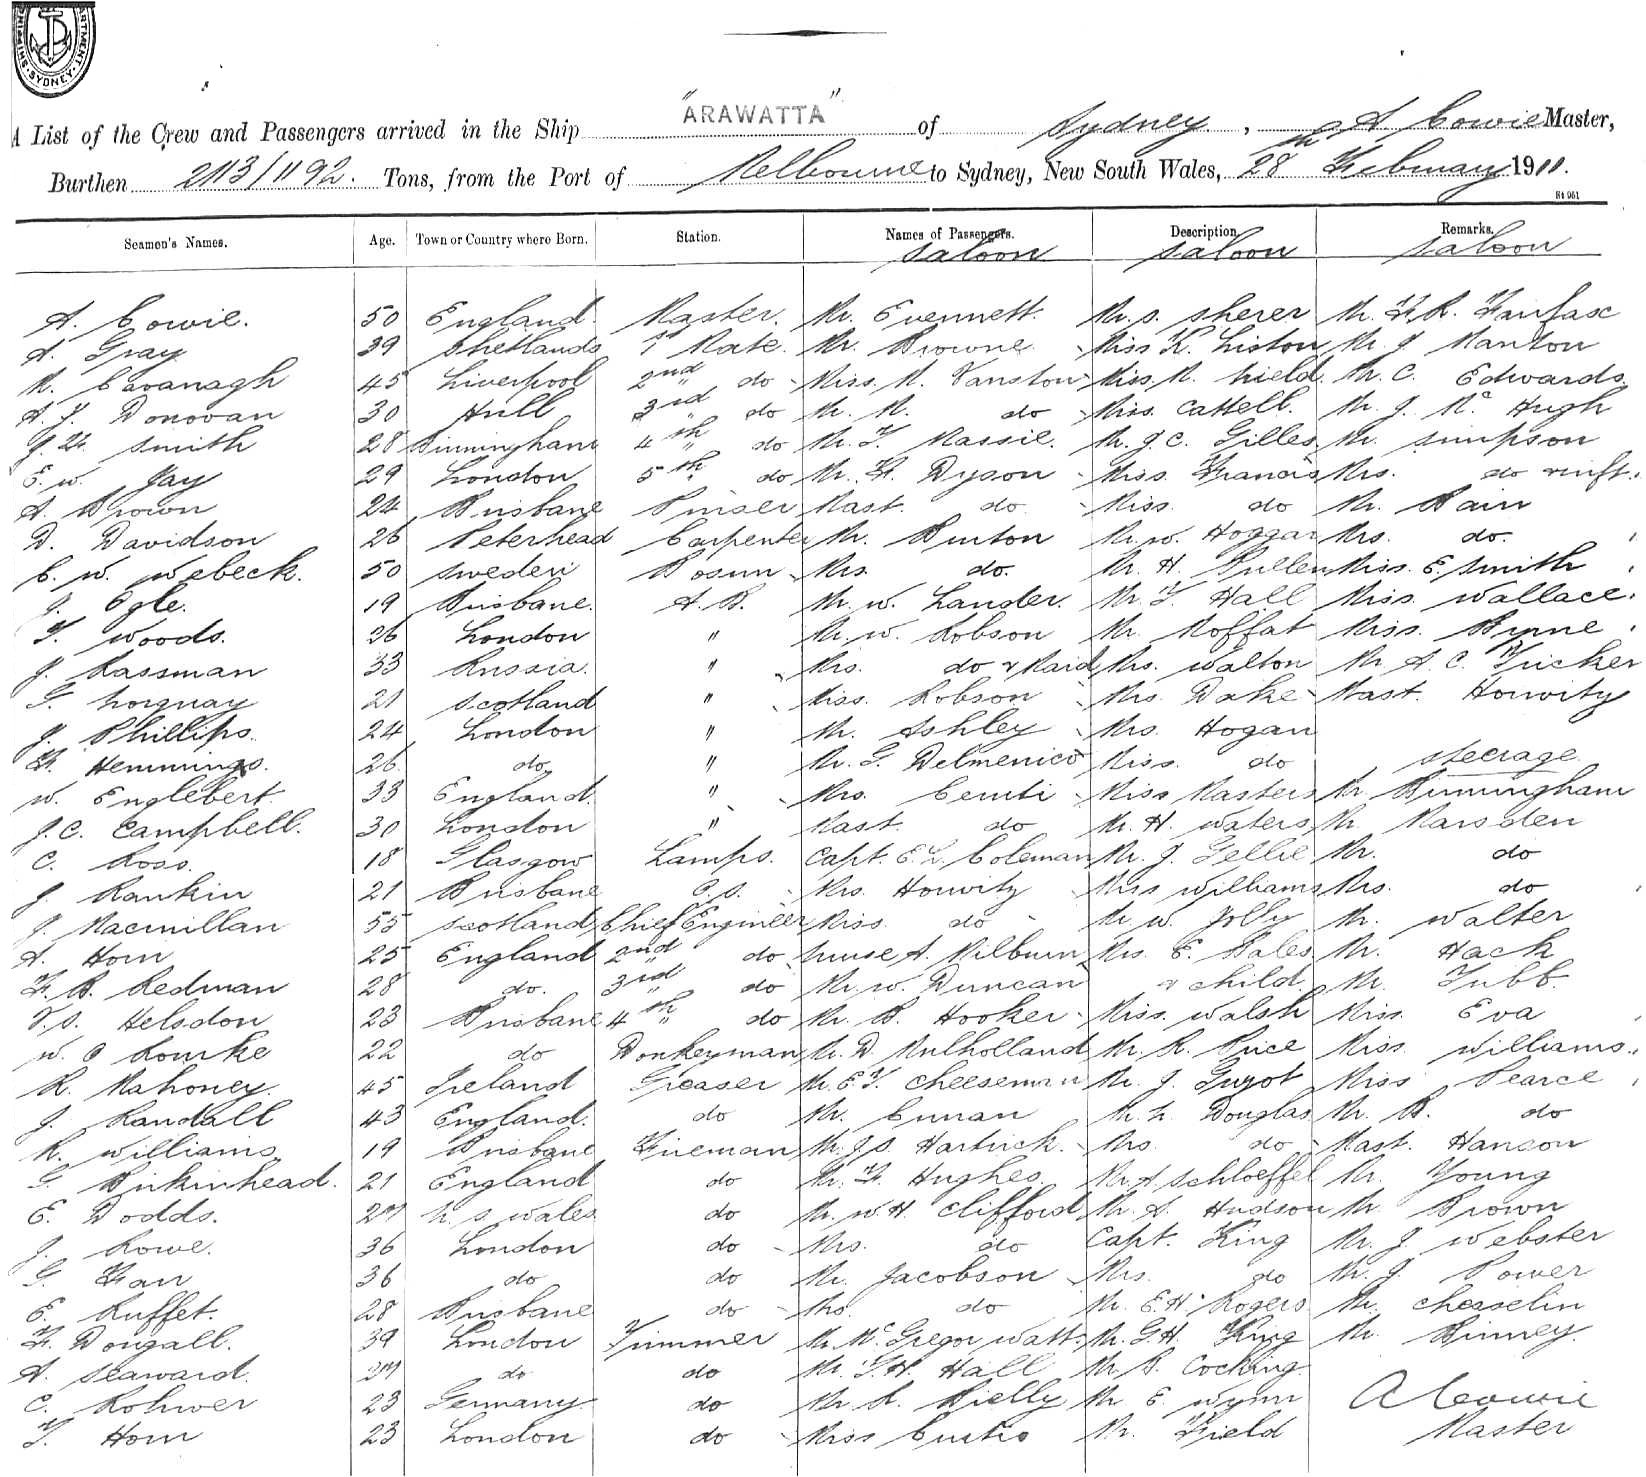 SHIPPING DEPARTMENT. SYDNEY.
A List of the Crew and Passengers arrived in the Ship "ARAWATTA" of Sydney, A Cowie Master,
Burthen 2113/1192. Tons, from the Port of Melbourne to Sydney, New South Wales, 28th February 1911.
St 961
Seamen's Names. Age. Town or Country where Born. Station. Names of Passengers. Description. Remarks.
Saloon Saloon Saloon
A. Cowie. 50 England. Master. Mr. Evennett. Mr. S. Sherer Mr. F. R. Fairfax
A. Gray 39 Shetlands 1st Mate. Mr. Browne. Miss K. Liston Mr. J Manton
M. Cavanagh 45 Liverpool 2nd " do Miss. M. Vanston Miss. M. Nield. Mr. C. Edwards
A. J. Donovan 30 Hull 3rd " do Mr. M. do Miss. Cattell. Mr. J. Mc Hugh
J. W. Smith 28 Birmingham 4th " do Mr. T. Massie. Mr. J. C. Gilles. Mr. Simpson
E. W. Jay 29 London 5th do Mr. F. Dyson Miss. Francis Mrs. do & inft.
A. Brown 24 Brisbane Purser Mast. do Miss. do Mr. Bain
D. Davidson 26 Peterhead Carpenter Mr. Burton Mr. W. Hoggan Mrs. do.
C. W. Webeck. 50 Sweden Bosun Mrs. do. Mr. H. Pullen Miss. E. Smith
J. Egle. 19 Brisbane. A. B. Mr. W. Lander. Mr. T. Hall Miss. Wallace.
T. Woods. 26 London " Mr. W. Robson Mr. Moffat Miss. Byrne
J. Kassman 33 Russia. " Mrs. do & Maid Mrs. Walton Mr A. C. Tucker
G. Lorgnay 21 Scotland " Miss. Robson Mrs. Dake Mast. Horwitz
J. Phillips. 24 London " Mr. Ashley Mrs. Hogan
F. Hemmings. 26 do " Mr. G. Delmenico Miss. do Steerage
W. Englebert. 33 England. " Mrs. Ceruti Miss Masters Mr Birmingham
J. C. Campbell. 30 London " Mast. do Mr. H. Waters Mr. Marsden
C. Ross. 18 Glasgow Lamps. Capt. E. L. Coleman Mr. J. Gellie Mr. do
J. Rankin 21 Brisbane O. S. Mrs. Horwitz Miss Williams Mrs. do
J. Macmillan 55 Scotland Chief Engineer Miss. do Mr W. Jolly Mr. Walter
A. Horn 25 England 2nd " do Nurse A. Milburn Mrs. E. Bales Mr. Hack
F. B. Redman 28 do. 3rd " do Mr. W. Duncan & child. Mr. Tubb.
V. S. Helsdon 23 Brisbane 4th " do Mr. B. Hooker Miss. Walsh Miss. Eva
W. O Rourke 22 do Donkeyman Mr. D Mulholland Mr. R. Price Miss. Williams.
R. Mahoney. 45 Ireland Greaser Mr. E. T. Cheeseman Mr. J. Guyot Miss Pearce
J. Randall 43 England. do Mr. Curran Mr. L. Douglas. Mr. B. do
R. Williams 19 Brisbane Fireman Mr. J. S. Hartrick. Mrs. do Mast. Hanson
G. Birkinhead. 21 England do Mr. F. Hughes. Mr. A Schloeffel Mr. Young
E. Dodds. 27 N. S. Wales do Mr. W. H. Clifford Mr. A. Hudson Mr Brown
J. Rowe. 36 London do Mrs. do Capt. King Mr. J Webster
G. 36 do do Mr. Jacobson Mrs. do Mr. J. Power
E. Ruffet. 28 Brisbane do Mrs. do Mr. E. H. Rogers Mr. Chesselin
F. Dougall. 39 London Trimmer Mr Mc Gregor Watt. Mr. G. H. King Mr Binney
A. Seaward. 27 do do Mr. T. H. Hall Mr. B. Cocking
C. Rohwer 23 Germany do Mr. R. Rielly Mr E. Wynn A Cowie
T. Horn 23 London do Miss Curtis Mr. Field Master